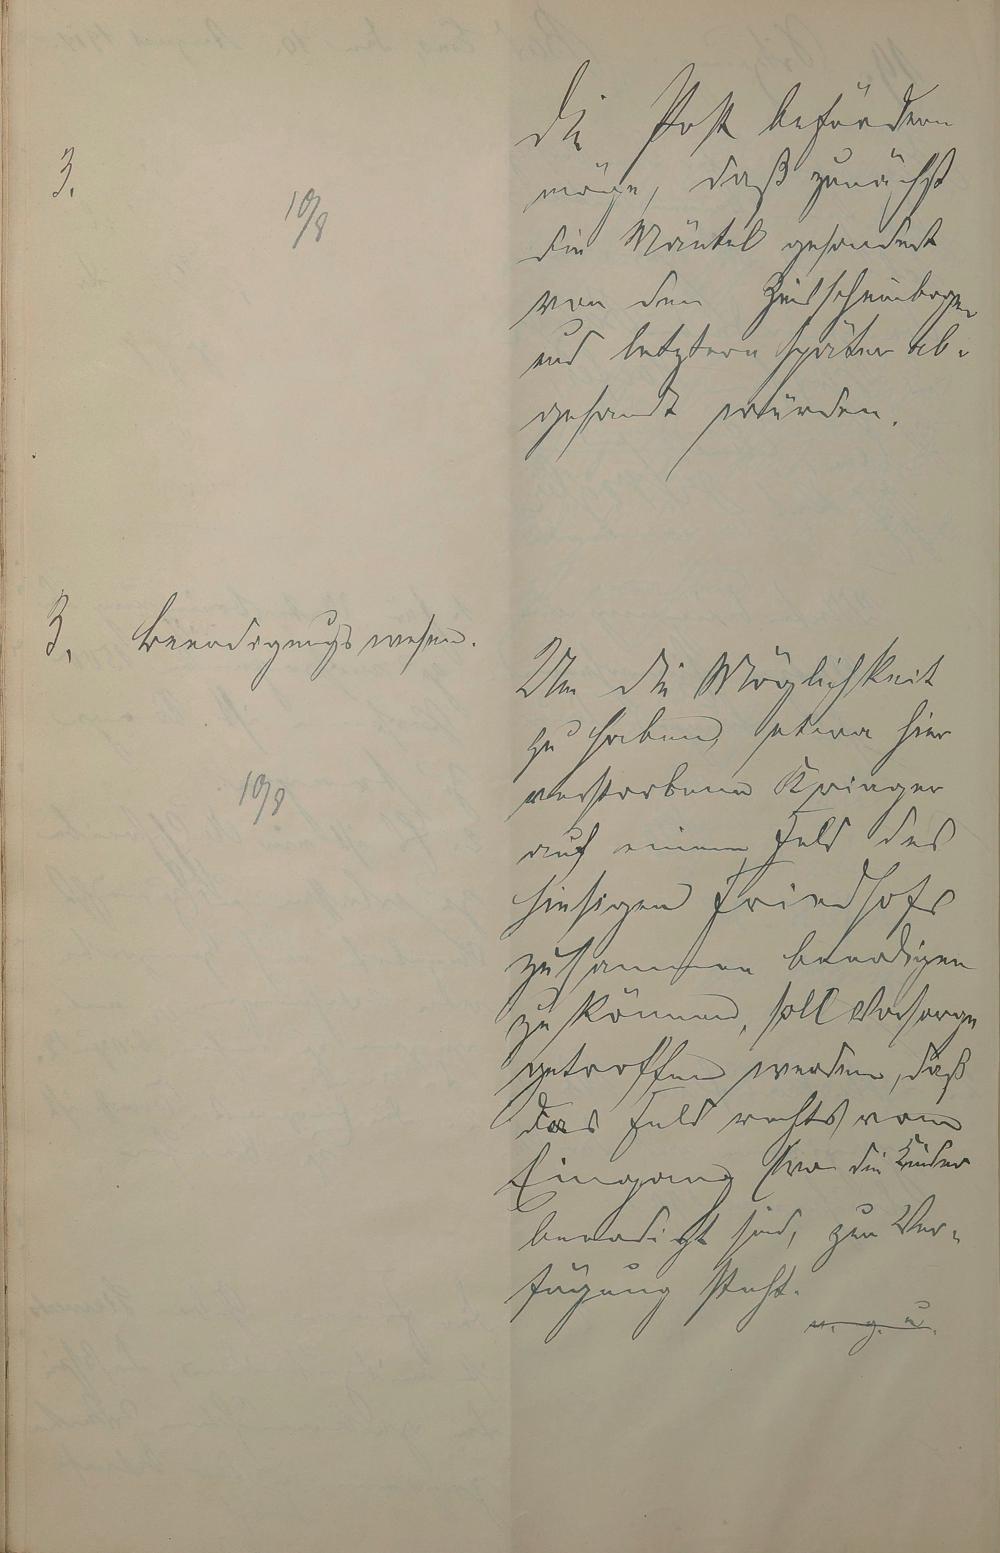 3.
10/8
die Post befördern
möge, daß zunächst
die Mäntel gesondert
von den Zinsscheinbogen
und letztere später ab-
gesandt würden.
3. Beerdigungswesen.
10/8
Um die Möglichkeit
zu haben, etwa hier
verstorbene Krieger
auf einem Feld des
hiesigen Friedhofs
zusammen beerdigen
zu können, soll Vorsorge
getroffen werden, daß
das Feld rechts vom
Eingang (wo die Kinder
beerdigt sind, zur Ver-
fügung steht.
v. g. u.